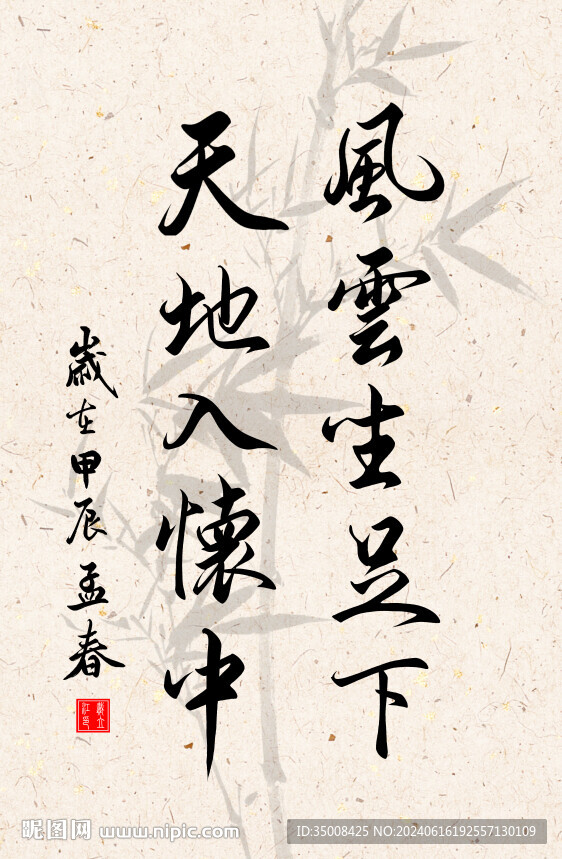 風雲坐足下
天地入懷中
歲在甲辰孟春
昵图网 www.nipic.com
ID:35008425 NO:20240616192557130109